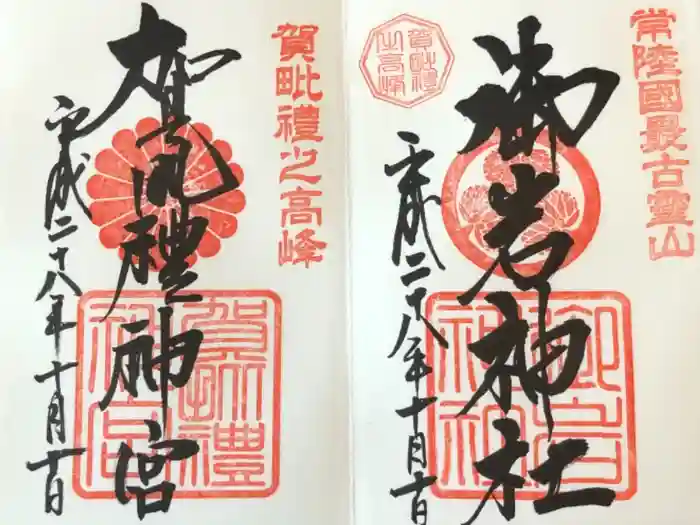 常陸國最古霊山
御岩神社
賀毗禮之高峰
平成二十八年十月十日
御岩神社
賀毗禮之高峰
賀毗禮神宮
平成二十八年十月十日
賀毗禮神宮